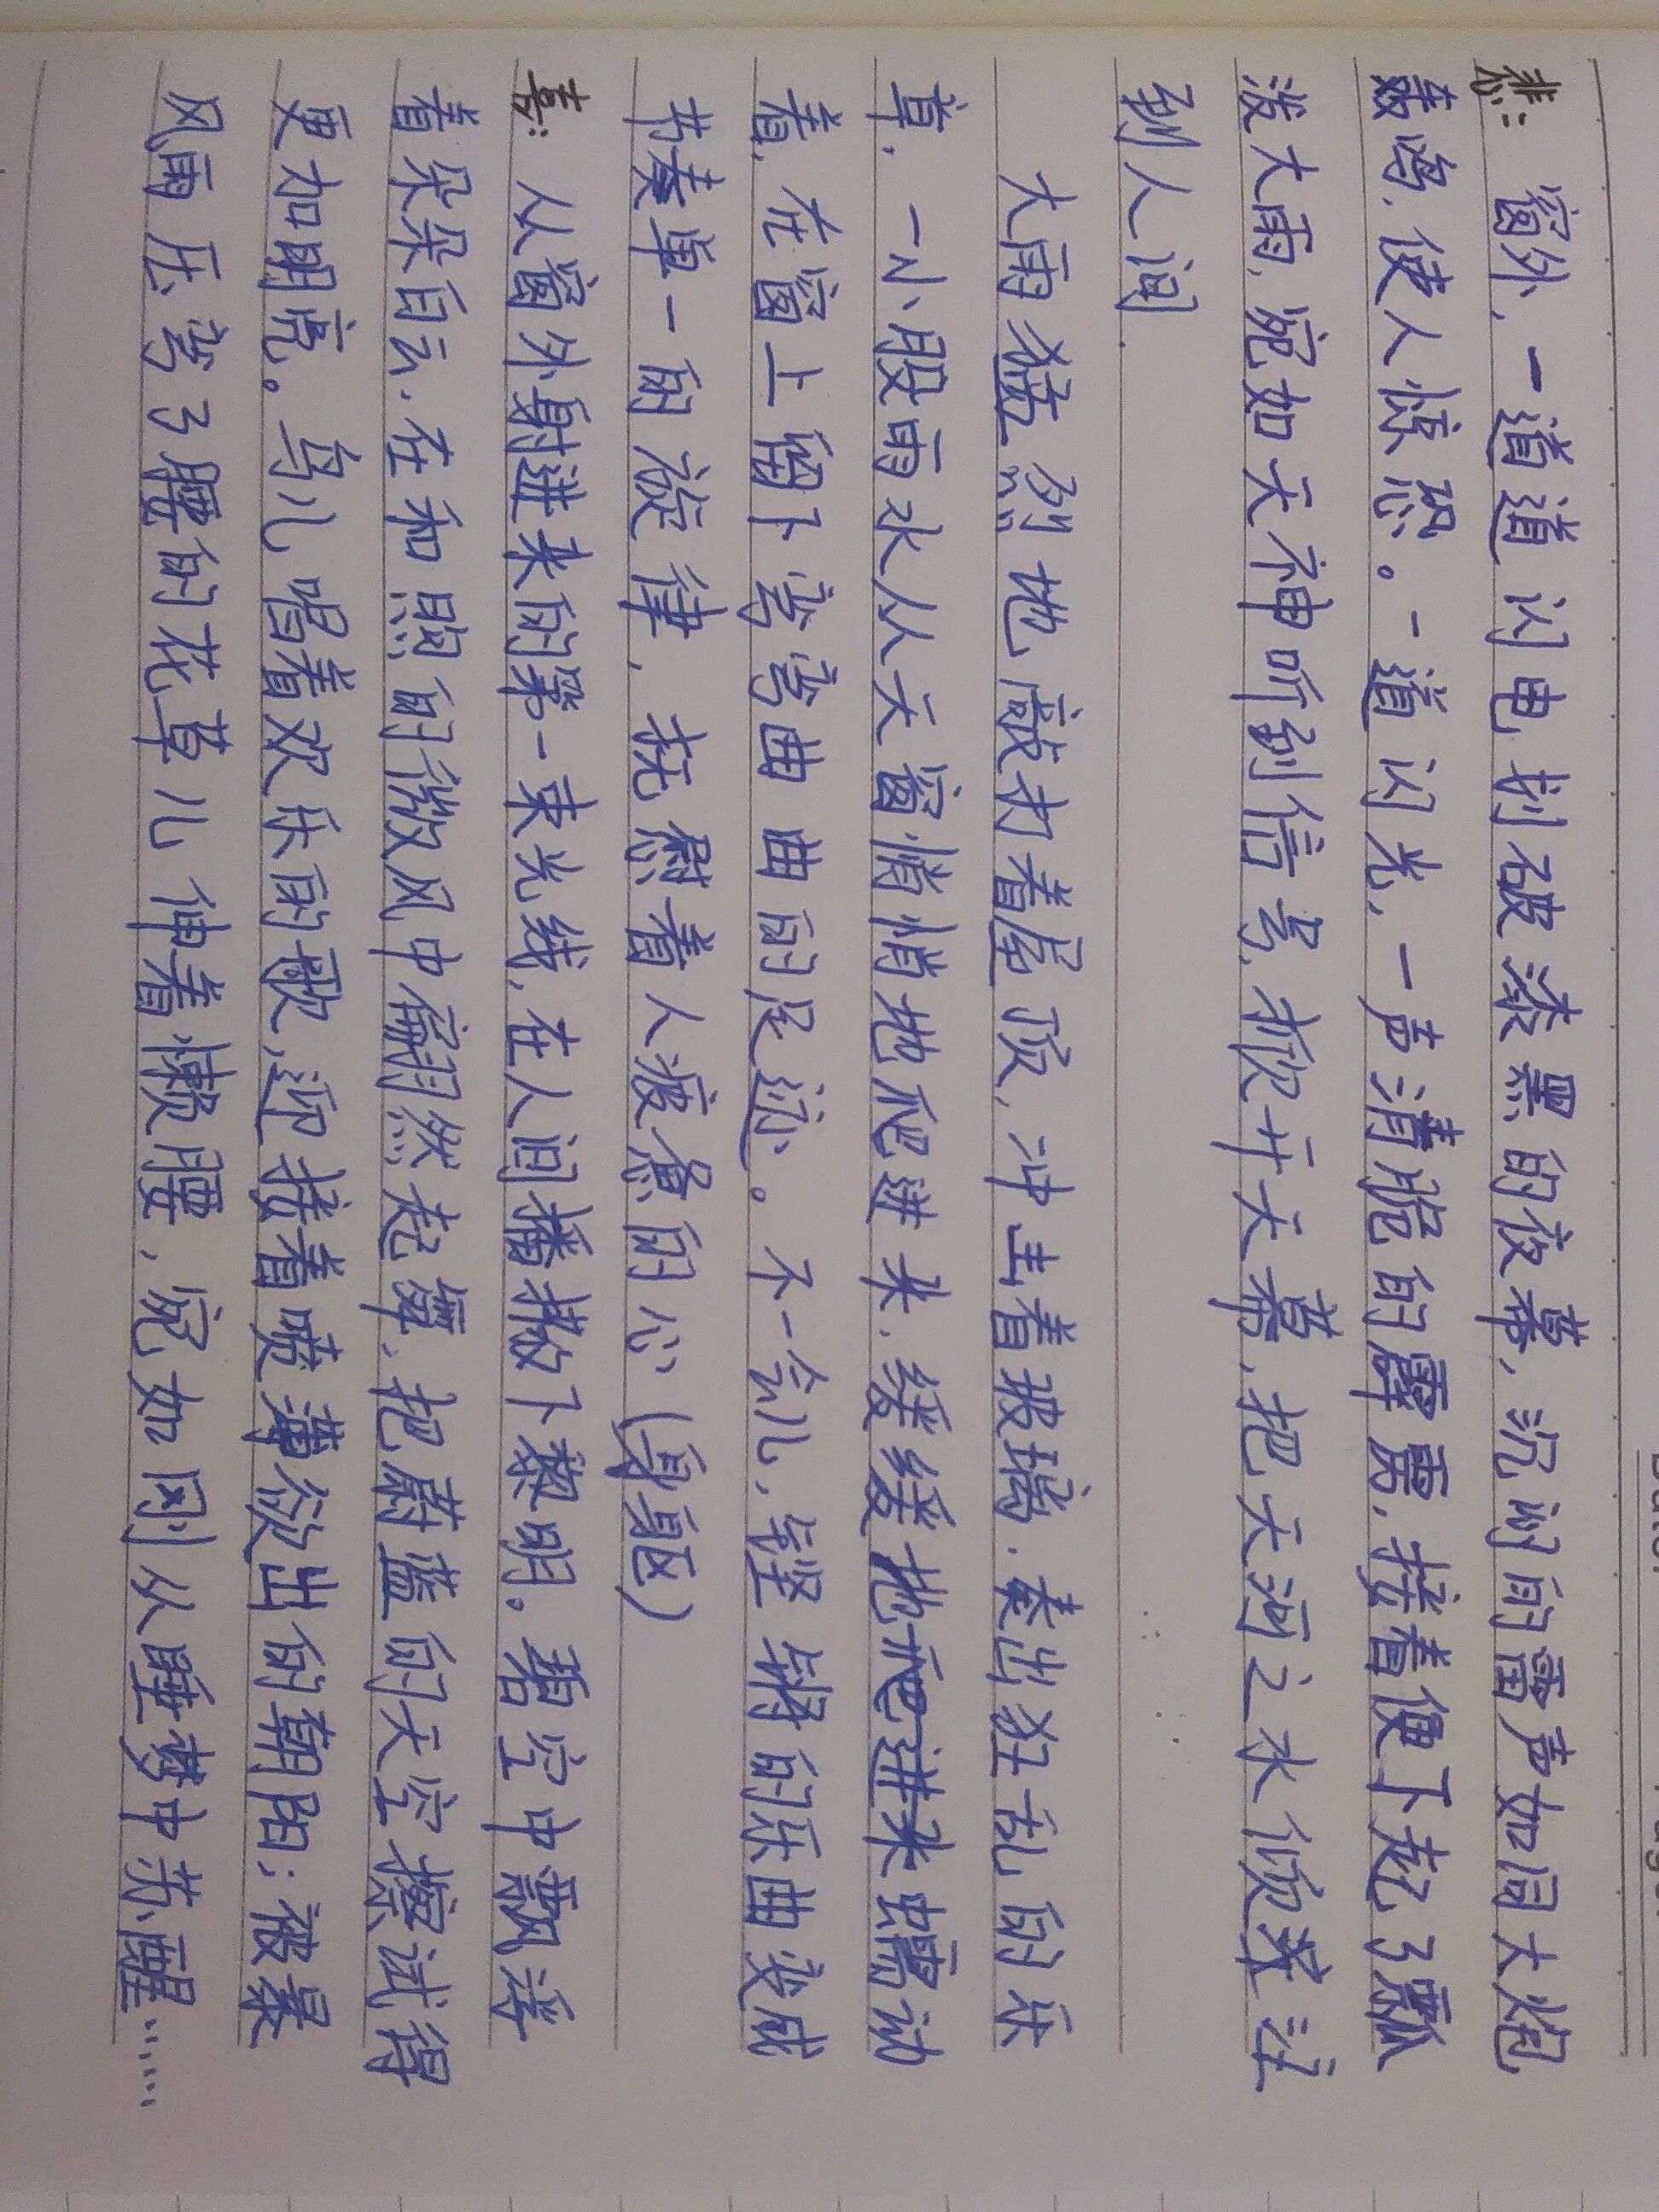 悲: 窗外,一道道闪电划破漆黑的夜幕,沉闷的雷声如同大炮
轰鸣,使人惊恐。一道闪光,一声清脆的霹雳,接着便下起了瓢
泼大雨,宛如天神听到信号,掀开天幕,把天河之水倾泼注
到人间.
大雨猛烈地敲打着屋顶,冲击着玻璃.奏出狂乱的乐
章.一小股雨水从天窗悄悄地爬进来.缓缓地爬进来蠕动
着,在窗上留下弯弯曲曲的足迹。不一会儿,铿锵的乐曲变成
节奏单一的旋律,抚慰着人疲惫的心(身躯)
喜: 从窗外射进来的第一束光线,在人间播撒下黎明。碧空中飘浮
着朵朵白云.在和煦的微风中翩翩然起舞,把蔚蓝的天空擦试得
更加明亮。鸟儿唱着欢乐的歌,迎接着喷薄欲出的朝阳;被暴
风雨压弯了腰的花草儿伸着懒腰,宛如刚从睡梦中苏醒……